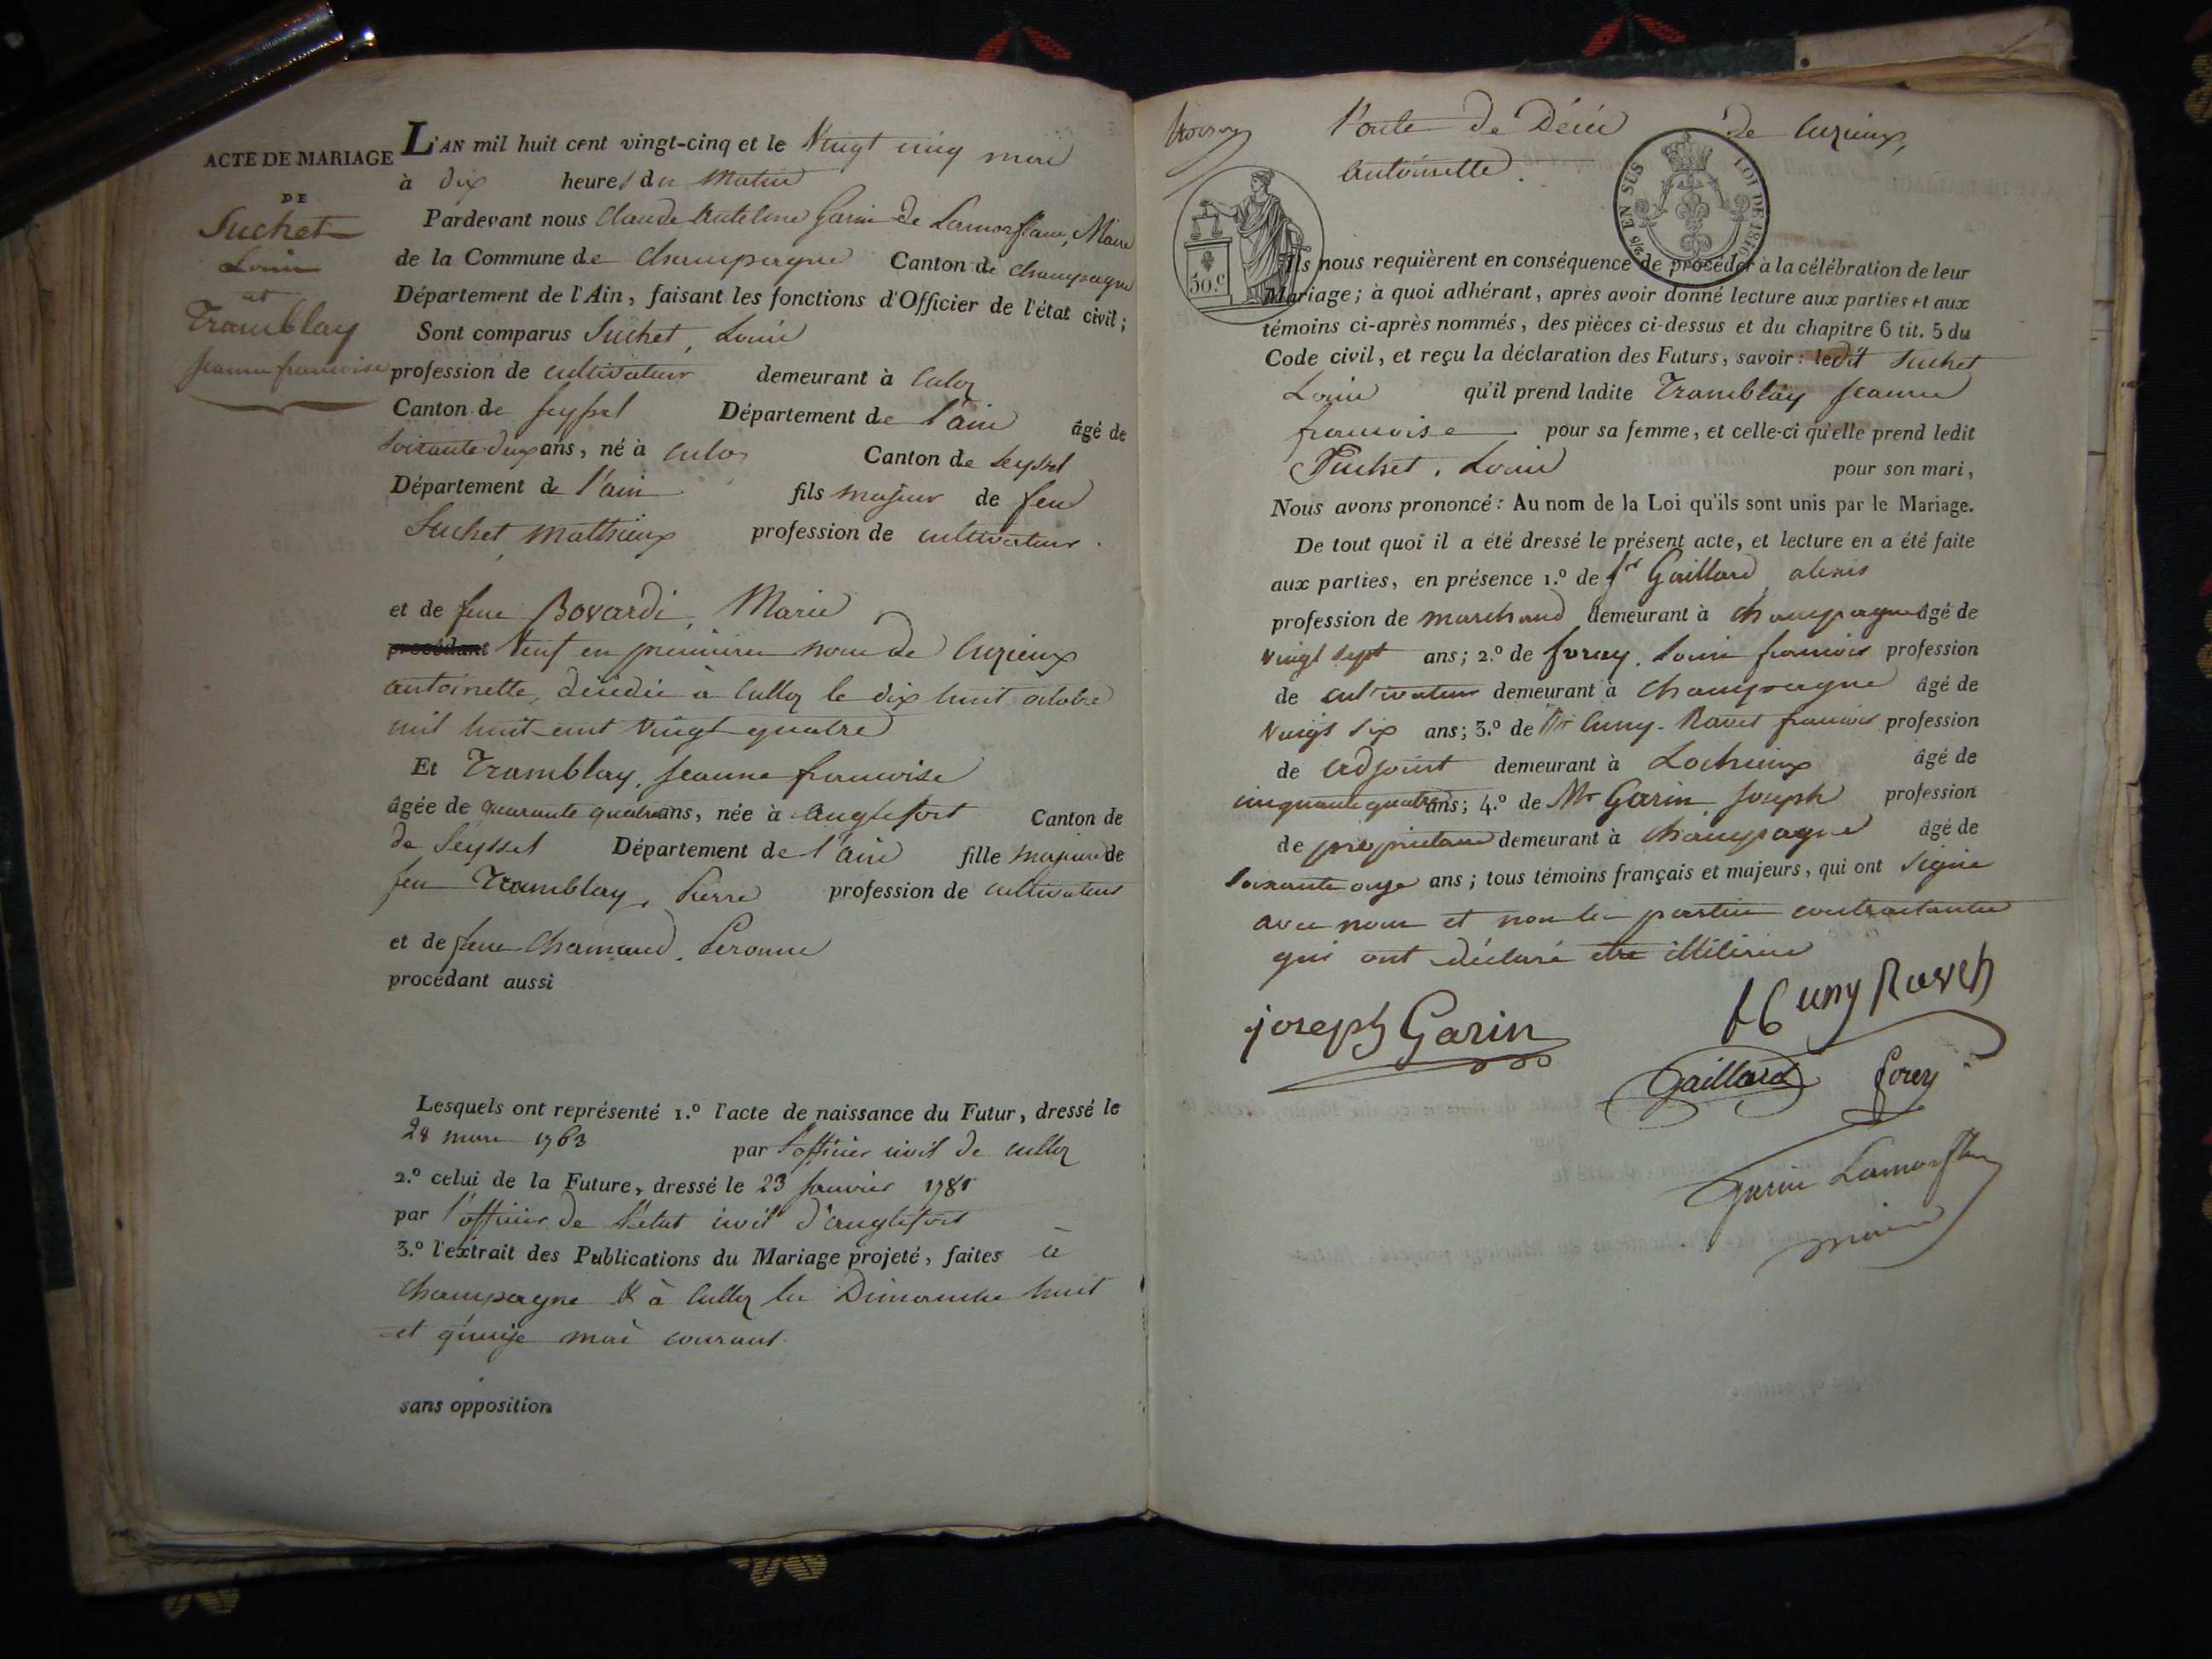 ACTE DE MARIAGE
DE
Suchet
Louis
et
Tramblay
Jeanne francoise
L'AN mil huit cent vingt-cinq et le Vingt cinq mai
à dix heures du matin
Pardevant nous Claude Anteline Garin de Lamorflan, Maire
de la Commune de Champagne Canton de Champagne
Département de l'Ain, faisant les fonctions d'Officier de l'état civil;
Sont comparus Suchet, Louis
profession de cultivateur demeurant à Culoz
Canton de Seyssel Département de l'ain âgé de
soixante deux ans, né à Culoz Canton de Seyssel
Département de l'ain fils majeur de feu
Suchet, Mathieux profession de cultivateur.
et de feue Bovardi, Marie
procédant Veuf en premiere noce de Cuzieux
antoinette, décédée à Culloz le dix huit octobre
mil huit cent vingt quatre
Et Tramblay, Jeanne francoise
âgée de quarante quatre ans, née à anglefort Canton de
de Seyssel Département de l'ain fille majeure de
feu Tramblay, Pierre profession de cultivateur
et de feue Chamand, Peronne
procédant aussi
Lesquels ont représenté 1.º l'acte de naissance du Futur, dressé le
28 mars 1763 par l'officier civil de Culloz
2.º celui de la Future, dressé le 23 Janvier 1781
par l'officier de l'état civil d'anglefort
3.º l'extrait des Publications du Mariage projeté, faites à
Champagne & à Culloz les Dimanche huit
et quinze mai courant
sans opposition
l'acte de Décès de Cuzieux,
antoinette.
50.c
2/5 EN SUS
LOI DE 1816
Ils nous requièrent en conséquence de procéder à la célébration de leur
Mariage; à quoi adhérant, après avoir donné lecture aux parties et aux
témoins ci-après nommés, des pièces ci-dessus et du chapitre 6 tit. 5 du
Code civil, et reçu la déclaration des Futurs, savoir: ledit Suchet
Louis qu'il prend ladite Tramblay Jeanne
francoise pour sa femme, et celle-ci qu'elle prend ledit
Suchet, Louis pour son mari,
Nous avons prononcé: Au nom de la Loi qu'ils sont unis par le Mariage.
De tout quoi il a été dressé le présent acte, et lecture en a été faite
aux parties, en présence 1.º de Sr Gaillard, alexis
profession de marchand demeurant à Champagne âgé de
vingt sept ans; 2.º de foray, Louis francois profession
de cultivateur demeurant à Champagne âgé de
vingt six ans; 3.º de Mr Cuny-Ravet francois profession
de adjoint demeurant à Lochieux âgé de
cinquante quatre ans; 4.º de Mr Garin Joseph profession
de propriétaire demeurant à Champagne âgé de
soixante onze ans; tous témoins français et majeurs, qui ont signé
avec nous et non les parties contractantes
qui ont déclaré etre illitéré
joseph Garin
Cuny Raveh
Gaillard
forey
Garin Lamorflan
maire